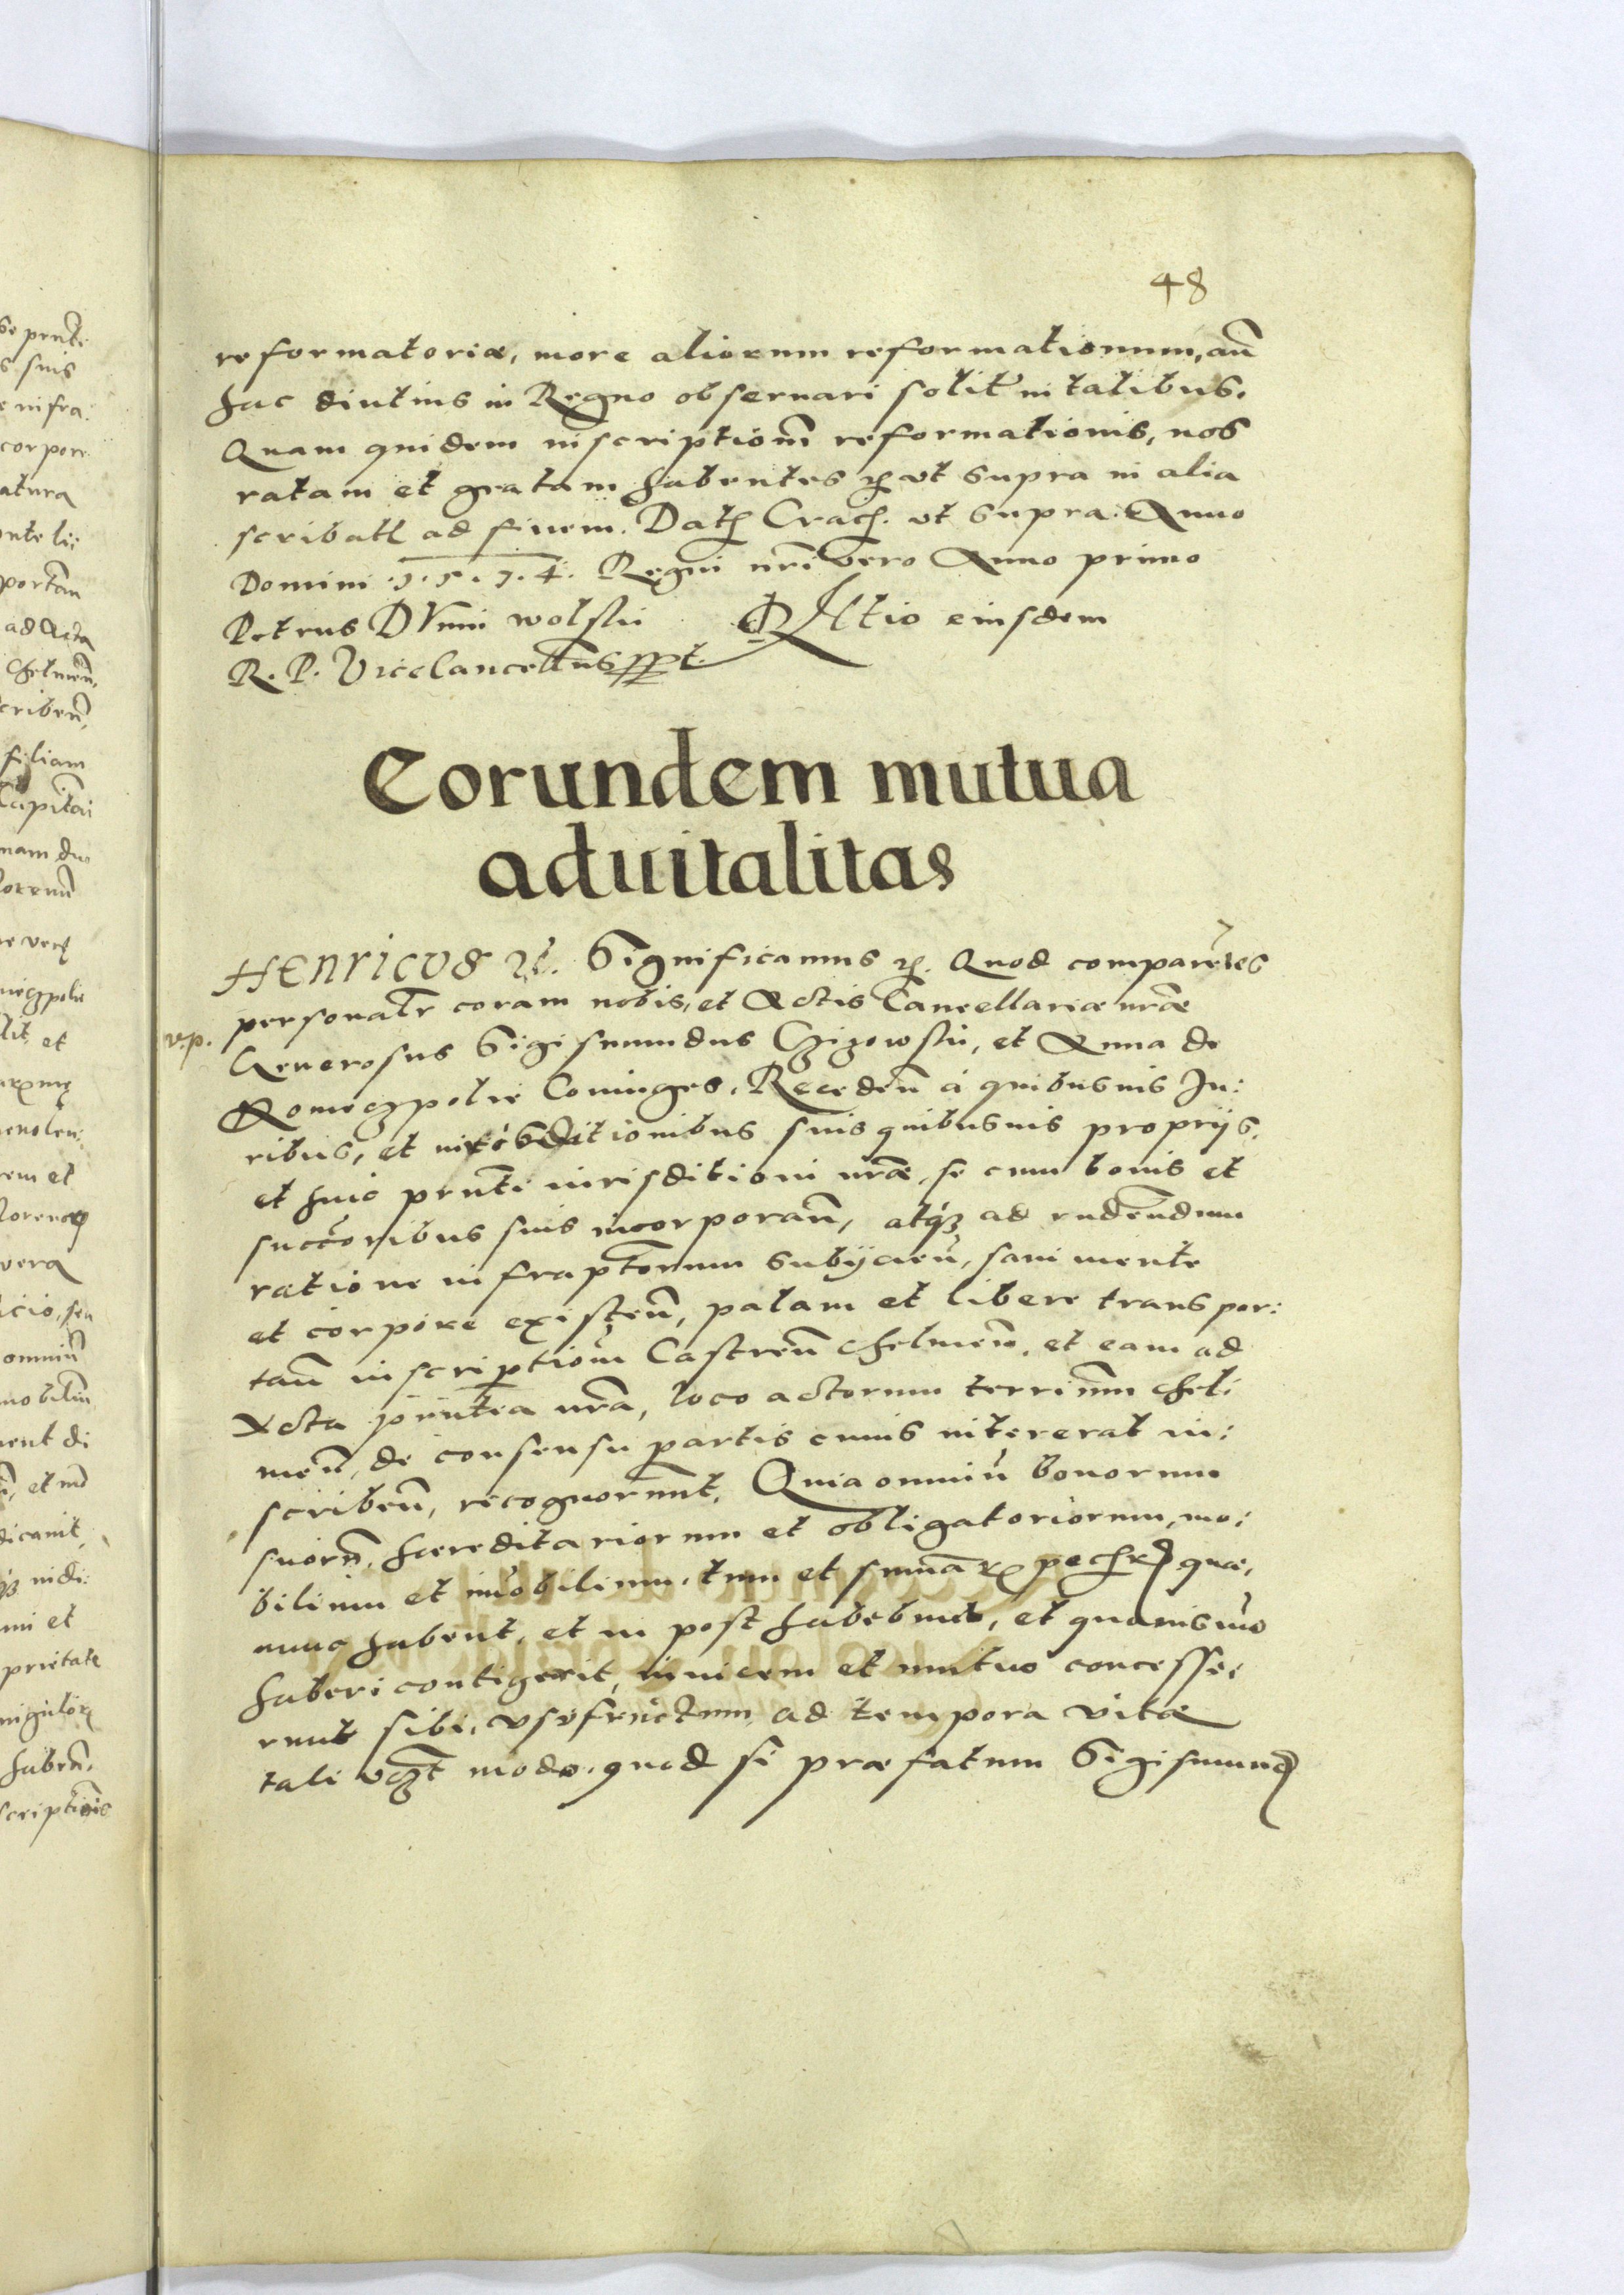 48
reformatoriæ, more aliorum reformationum, an̄
hac diutius in Regno obseruari solit̄ in talibus.
Quam quidem inscriptiōm reformationis, nos
ratam et gratam habentes ꝛc ut supra in alia
scribatl ad finem. Datȝ Cracȝ. ut supra. Anno
Domini .1.5.7.4. Regni nr̄i vero Anno primo
Petrus Dunin wolski Rltio eiusdem
R. P. Vicecancellr̄ius sspt.
Eorundem mutua
aduitalitas
HENRICVS ꝛc. Significamus ꝛc. Quod comparēn̄tes
personalr̄ coram nobis, et Actis Cancellariæ nr̄æ
v.p.
Generosus Sigismundus Czizowski, et Anna de
Konieczpolie Coniuges. Receden̄ à quibusuis Iu:
ribus, et iurisditionibus suis quibusuis proprijs,
et huic prnti iurisditioni nr̄æ, se cum bonis et
succ̄oribus suis incorporan̄, atqȝ ad eudēndum
ratione infraptorum subijcien̄, sani mente
et corpore existen̄, palam et libere transpor:
tan̄ inscriptiōm Castren̄ Chelmen̄. et eam ad
Acta prntia nr̄a, loco actorum terrium Chel:
men̄, de consensu partis cuius intererat in:
scriben̄, recognorunt. Quia omniū bonorum
suorū, hæreditariorum et obligatoriorum, mo:
bilium et im̄obilium, tum et sum̄arꝝ pecȝrꝝ quæ,
nunc habent, et in post habebunt, et quamisuo
haberi contigerit, inuicem et mutuo concesse:
runt sibi, usufructum ad tempora vitæ
tali vȝt modo. quod si præfatum Sigismund